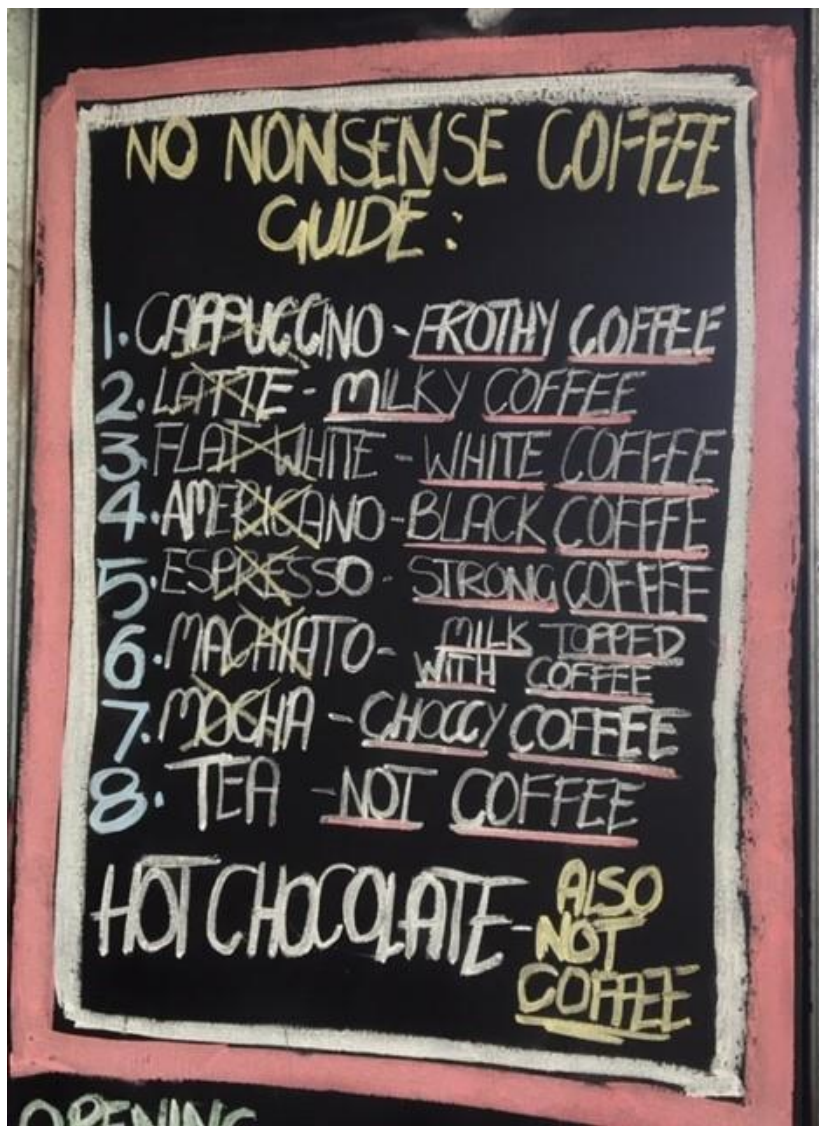 NO NONSENSE COFFEE
GUIDE:
1. CAPPUCCINO - FROTHY COFFEE
2. LATTE - MILKY COFFEE
3 FLAT WHITE - WHITE COFFEE
4. AMERICANO - BLACK COFFEE
5. ESPRESSO - STRONG COFFEE
6. MACHIATO - MILK TOPPED
WITH COFFEE
7. MOCHA - CHOCCY COFFEE
8. TEA - NOT COFFEE
HOT CHOCOLATE - ALSO
NOT
COFFEE
OPENING